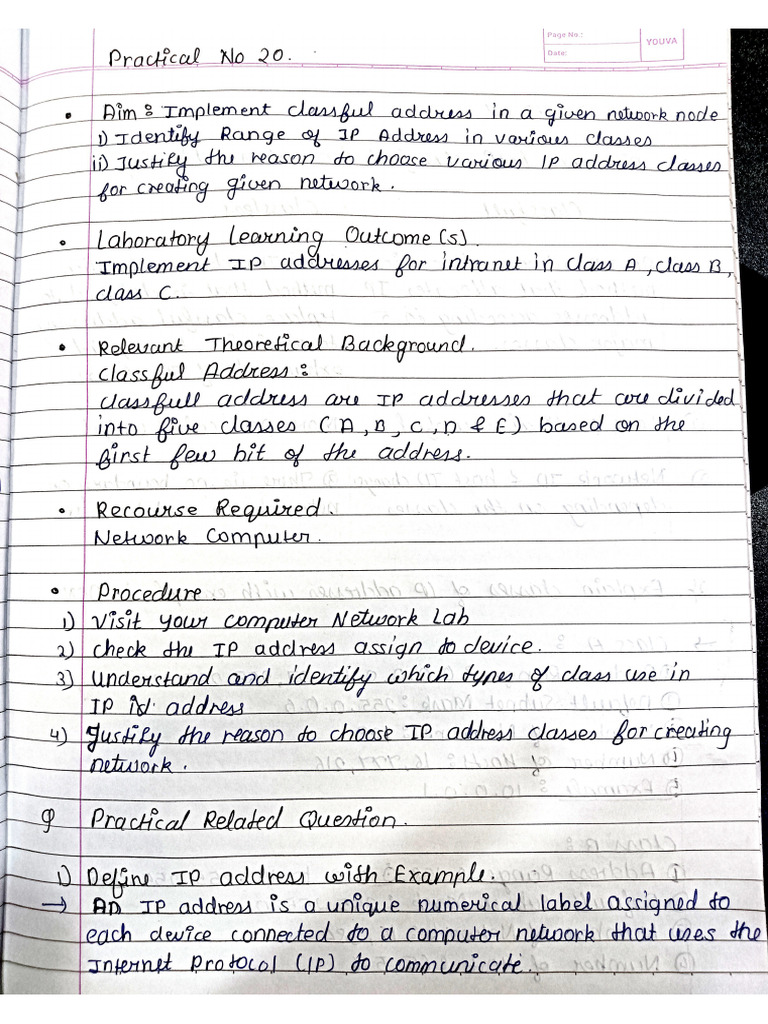 Page No.:
Date:
YOUVA
Practical No 20.
• Aim : Implement classful address in a given network node
i) Identify Range of IP Address in various classes
ii) Justify the reason to choose various IP address classes
for creating given network.
• Laboratory Learning Outcome(s).
Implement IP addresses for intranet in class A, class B,
class C.
• Relevant Theoretical Background.
Classful Address :
Classfull address are IP addresses that are divided
into five classes (A, B, C, D & E) based on the
first few bit of the address.
• Recourse Required.
Network Computer.
• Procedure.
1) Visit your computer Network Lab
2) check the IP address assign to device.
3) Understand and identify which types of class use in
IP address
4) Justify the reason to choose IP address classes for creating
network.
Q Practical Related Question.
1) Define IP address with Example.
→ An IP address is a unique numerical label assigned to
each device connected to a computer network that uses the
Internet Protocol (IP) to communicate.